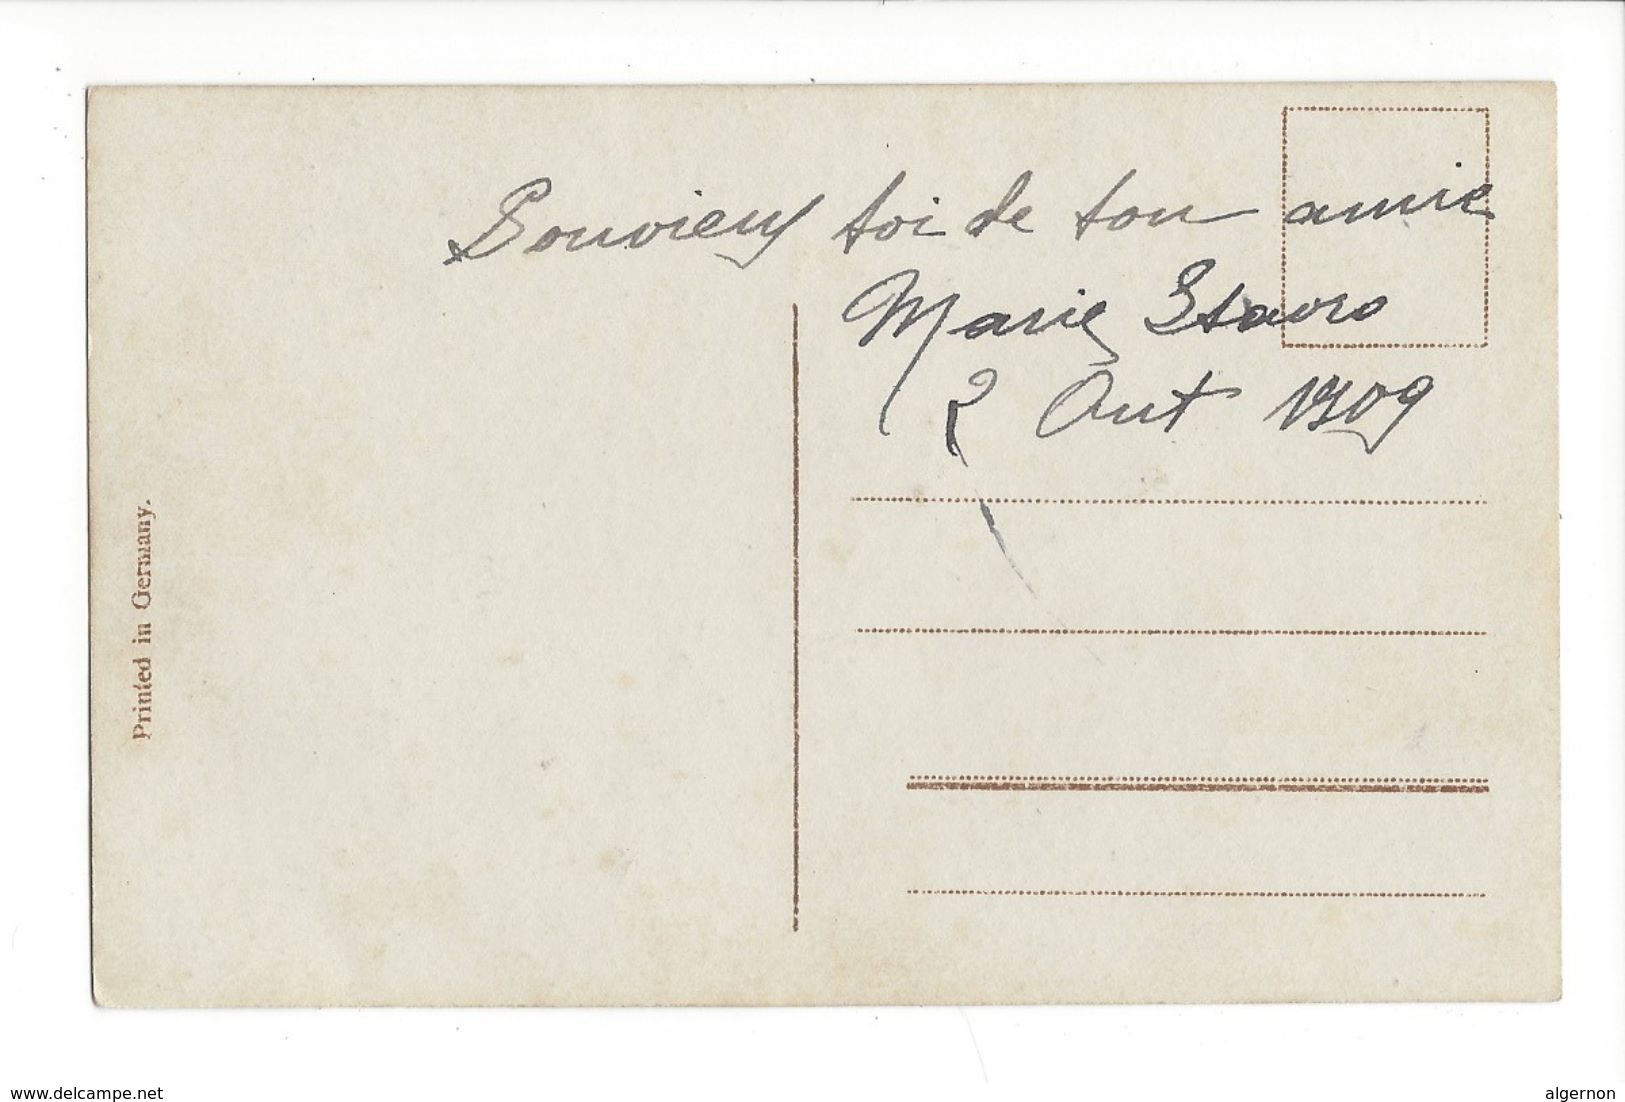 Souviens toi de ton amie
Marie Stavro
2 Out 1909
Printed in Germany.
www.delcampe.net
algernon